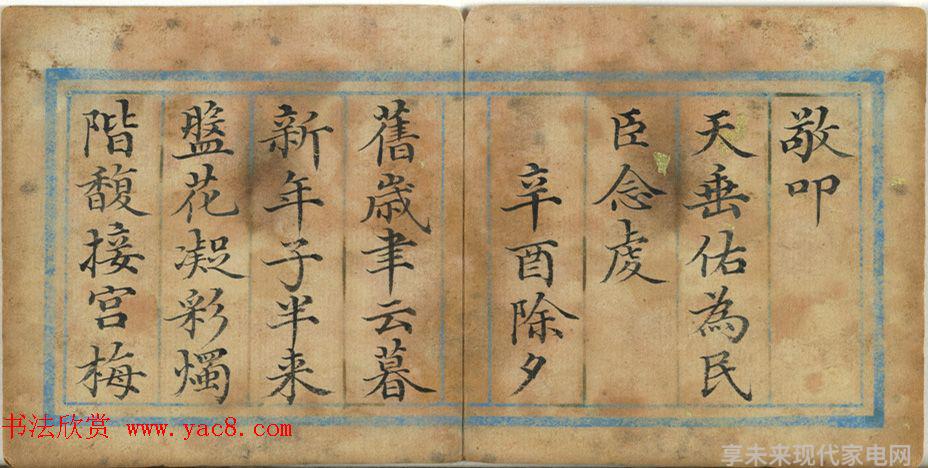 敬叩
天垂佑為民
臣念虔
辛酉除夕
舊歲聿云暮
新年子半来
盤花凝彩燭
階馥接宮梅
书法欣赏 www.yac8.com
享未来现代家电网